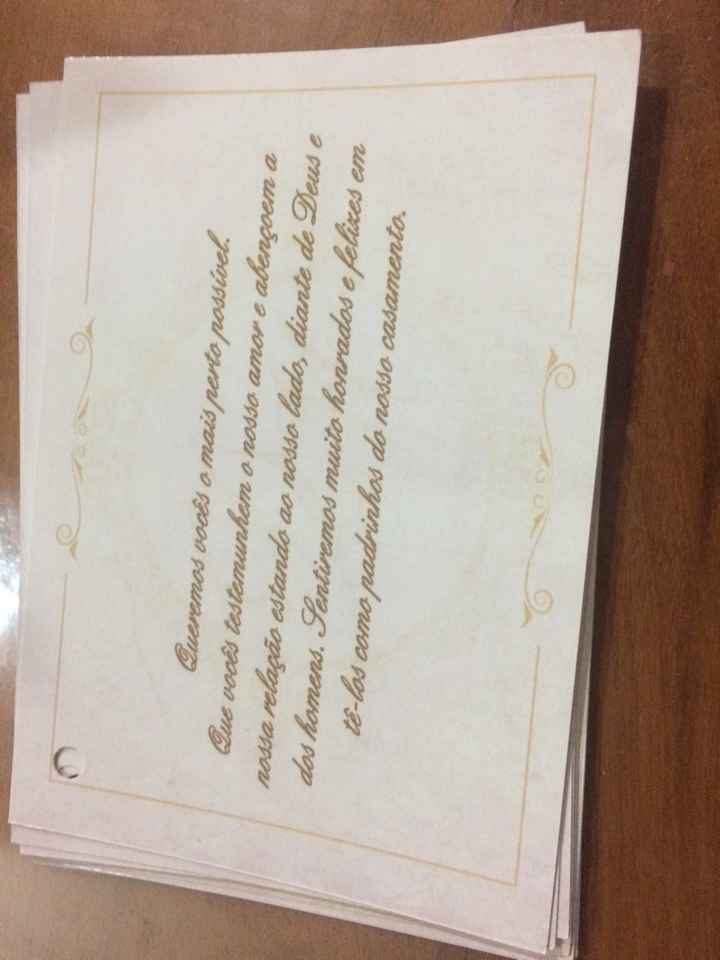 Queremos vocês o mais perto possível.
Que vocês testemunhem o nosso amor e abençoem a
nossa relação estando ao nosso lado, diante de Deus e
dos homens. Sentiremos muito honrados e felizes em
tê-los como padrinhos do nosso casamento.